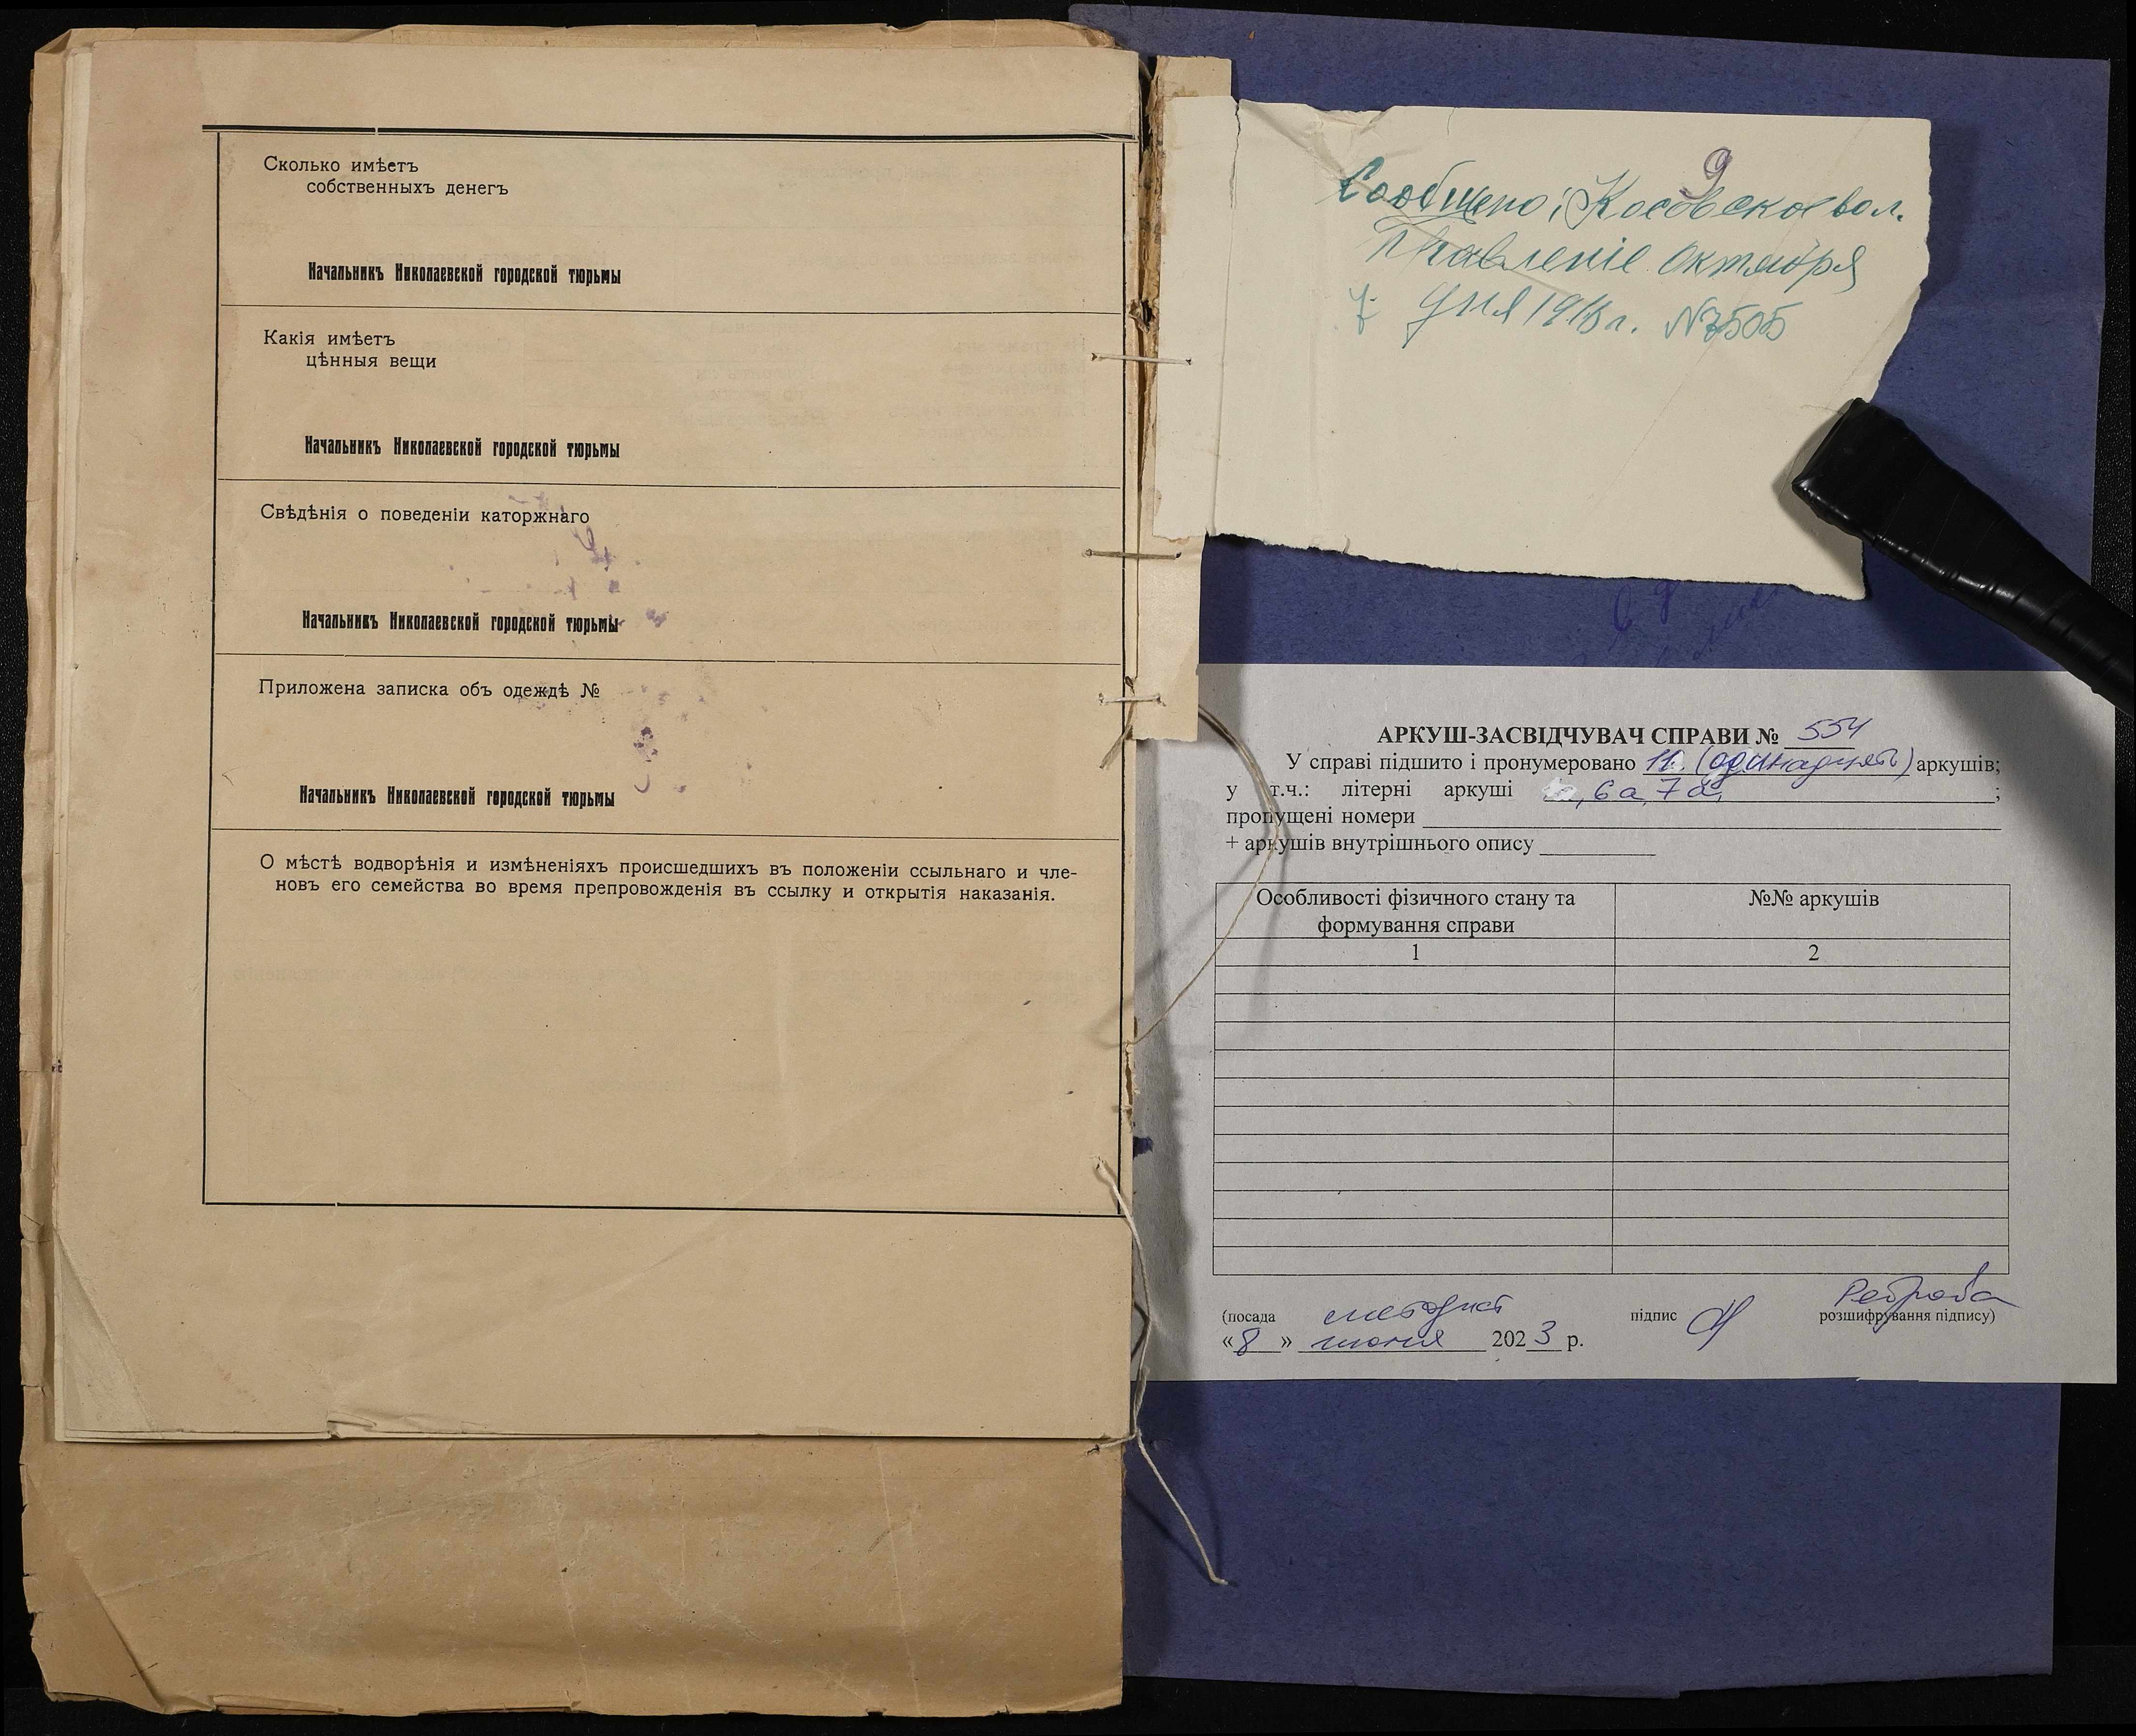 Сколько имѣетъ
собственныхъ денегъ
Начальникъ Николаевской городской тюрьмы
Какія имѣетъ
цѣнныя вещи
Начальникъ Николаевской городской тюрьмы
Свѣдѣнія о поведеніи каторжнаго
Начальникъ Николаевской городской тюрьмы
Приложена записка объ одеждѣ №
Начальникъ Николаевской городской тюрьмы
О мѣстѣ водворѣнія и измѣненіяхъ происшедшихъ въ положеніи ссыльнаго и чле-
новъ его семейства во время препровожденія въ ссылку и открытія наказанія.
9
Сообщено: Косовское вол.
Правленіе октября
7 дня г. №
АРКУШ-ЗАСВІДЧУВАЧ СПРАВИ № 554
У справі підшито і пронумеровано 11 (одинадцять) аркушів;
у т.ч.: літерні аркуші , 6а, 7а ;
пропущені номери
+ аркушів внутрішнього опису
Особливості фізичного стану та
формування справи
№№ аркушів
1 2
(посада методист підпис розшифрування підпису)
«8» 2023 р.